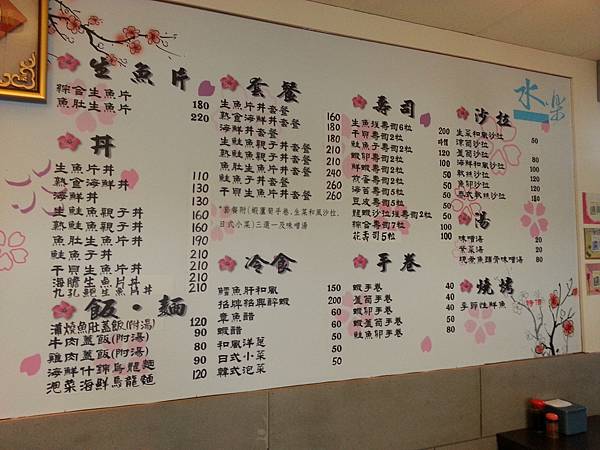 水樂
生魚片
綜合生魚片 180
魚肚生魚片 220
丼
生魚片丼 110
熟食海鮮丼 130
海鮮丼 130
生鮭魚親子丼 160
熟鮭魚親子丼 160
魚肚生魚片丼 190
鮭魚子丼 210
干貝生魚片丼 210
海膽生魚片丼 210
九孔鮑生魚片丼 210
飯·麵
蒲燒魚肚蓋飯(附湯) 120
牛肉蓋飯(附湯) 90
雞肉蓋飯(附湯) 80
海鮮什錦烏龍麵 90
泡菜海鮮烏龍麵 120
套餐
生魚片丼套餐 160
熟食海鮮丼套餐 180
海鮮丼套餐 180
生鮭魚親子丼套餐 210
熟鮭魚親子丼套餐 210
魚肚生魚片丼套餐 240
鮭魚子丼套餐 260
干貝生魚片丼套餐 260
*套餐附(蝦蘆筍手卷,生菜和風沙拉,
日式小菜)三選一及味噌湯
冷食
鱈魚肝和風 150
招牌紹興醉蝦 200
章魚醋
蝦醋
和風洋蔥 50
日式小菜 50
韓式泡菜 50
壽司
生魚握壽司6粒 200
干貝壽司2粒
鮭魚子壽司2粒 120
蝦卵壽司2粒
鮮蝦壽司2粒
海苔壽司5粒
豆皮壽司5粒 50
龍蝦沙拉握壽司2粒
綜合壽司7粒
花壽司5粒 100
手卷
蝦手卷 40
蘆筍手卷 40
蝦卵手卷 60
蝦蘆筍手卷 50
鮭魚卵手卷 80
沙拉
生菜和風沙拉 50
涼筍沙拉
蘆筍沙拉
海鮮和風沙拉
軟絲沙拉
魚卵沙拉
湯
味噌湯 20
紫菜湯 20
現煮魚頭骨味噌湯 50
燒烤
季節性鮮魚 時價